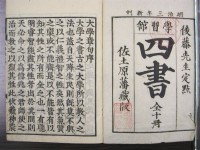 明治三年新刊
後藤先生定點
四書
全十冊
學習館
佐土原藩蔵版
大學章句序
大學之書古之大學所以教人之
法也蓋自天降生民則既莫不與
之以仁義禮智之性矣然其氣質
之稟或不能齊是以不能皆有以
知其性之所有而全之也一有聰
明睿智能盡其性者出於其間則
天必命之以爲億兆之君師使之
治而教之以復其性此伏羲神農